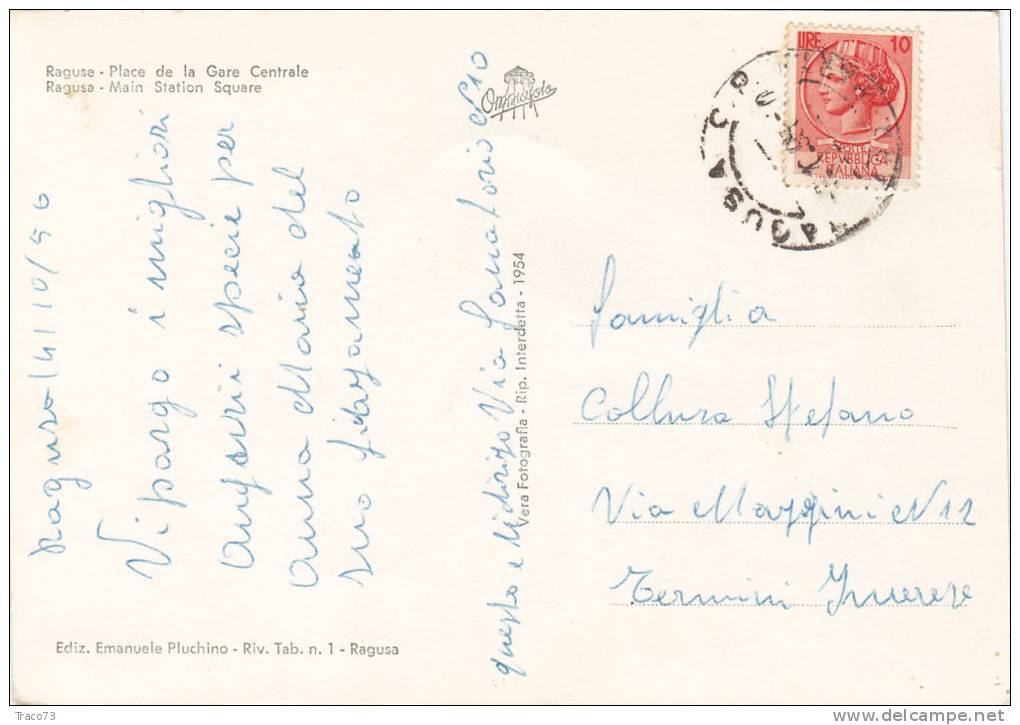 Raguse - Place de la Gare Centrale
Ragusa - Main Station Square
Omniafoto
LIRE 10
POSTE
REPVBBLICA
ITALIANA
RAGUSA
Ragusa 14/10/56
Vi porgo i migliori
Auguri specie per
Anna Maria del
suo fidazameto
questo e l'Indirizo Via Sanatorio N 10
Vera Fotografia - Rip. Interdetta - 1954
Famiglia
Collura Stefano
Via Mazzini N 12
Termini Imerese
Ediz. Emanuele Pluchino - Riv. Tab. n. 1 - Ragusa
Traco73
www.delcampe.net